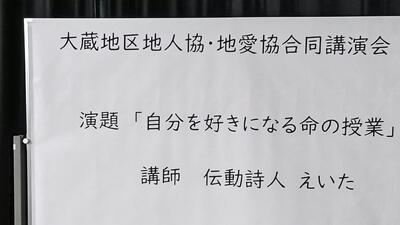 大蔵地区地人協・地愛協合同講演会
演題 「自分を好きになる命の授業」
講師 伝動詩人 えいた